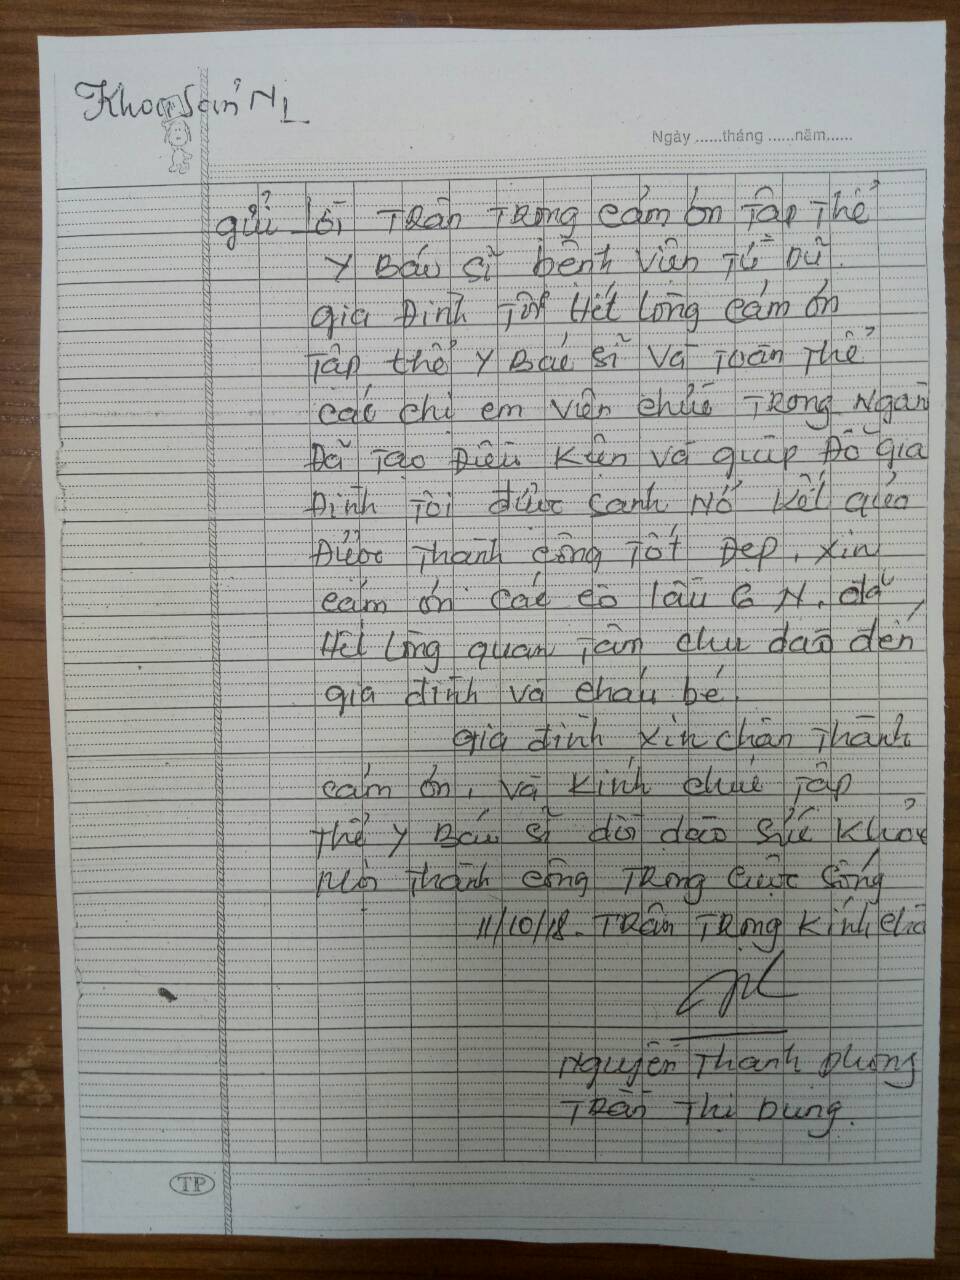 Khoa Sản N1
Ngày ......tháng ......năm......
gửi lời Trân Trọng cảm ơn Tập Thể
Y Bác sĩ bệnh viện Từ Dũ.
gia Đình Tôi Hết lòng cảm ơn
Tập thể Y Bác sĩ và Toàn Thể
các chị em viên chức Trong Ngành
Đã Tạo Điều Kiện và giúp Đỡ gia
Đình Tôi được sanh Nở Kết quả
Được Thành công Tốt Đẹp. xin
cảm ơn các cô lầu 6 N. đã
Hết lòng quan Tâm chu đáo đến
gia đình và cháu bé.
gia đình xin chân Thành
cảm ơn, và Kính chúc Tập
Thể Y Bác sĩ dồi dào sức Khỏe
Thành công Trong cuộc sống
11/10/18. Trân Trọng Kính chào
Nguyễn Thanh Phong
Trần Thị Dung.
TP